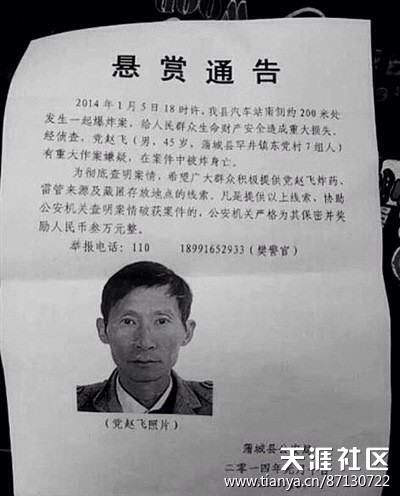 悬赏通告
2014年1月5日18时许，我县汽车站南侧约200米处
发生一起爆炸案，给人民群众生命财产安全造成重大损失。
经侦查，党赵飞（男，45岁，蒲城县罕井镇东党村7组人）
有重大作案嫌疑，在案件中被炸身亡。
为彻底查明案情，希望广大群众积极提供党赵飞炸药、
雷管来源及藏匿存放地点的线索。凡是提供以上线索，协助
公安机关查明案情破获案件的，公安机关严格为其保密并奖
励人民币叁万元整。
举报电话：110 18991652933（樊警官）
（党赵飞照片）
蒲城县公安局
二〇一四年元月
天涯社区
www.tianya.cn/87130722